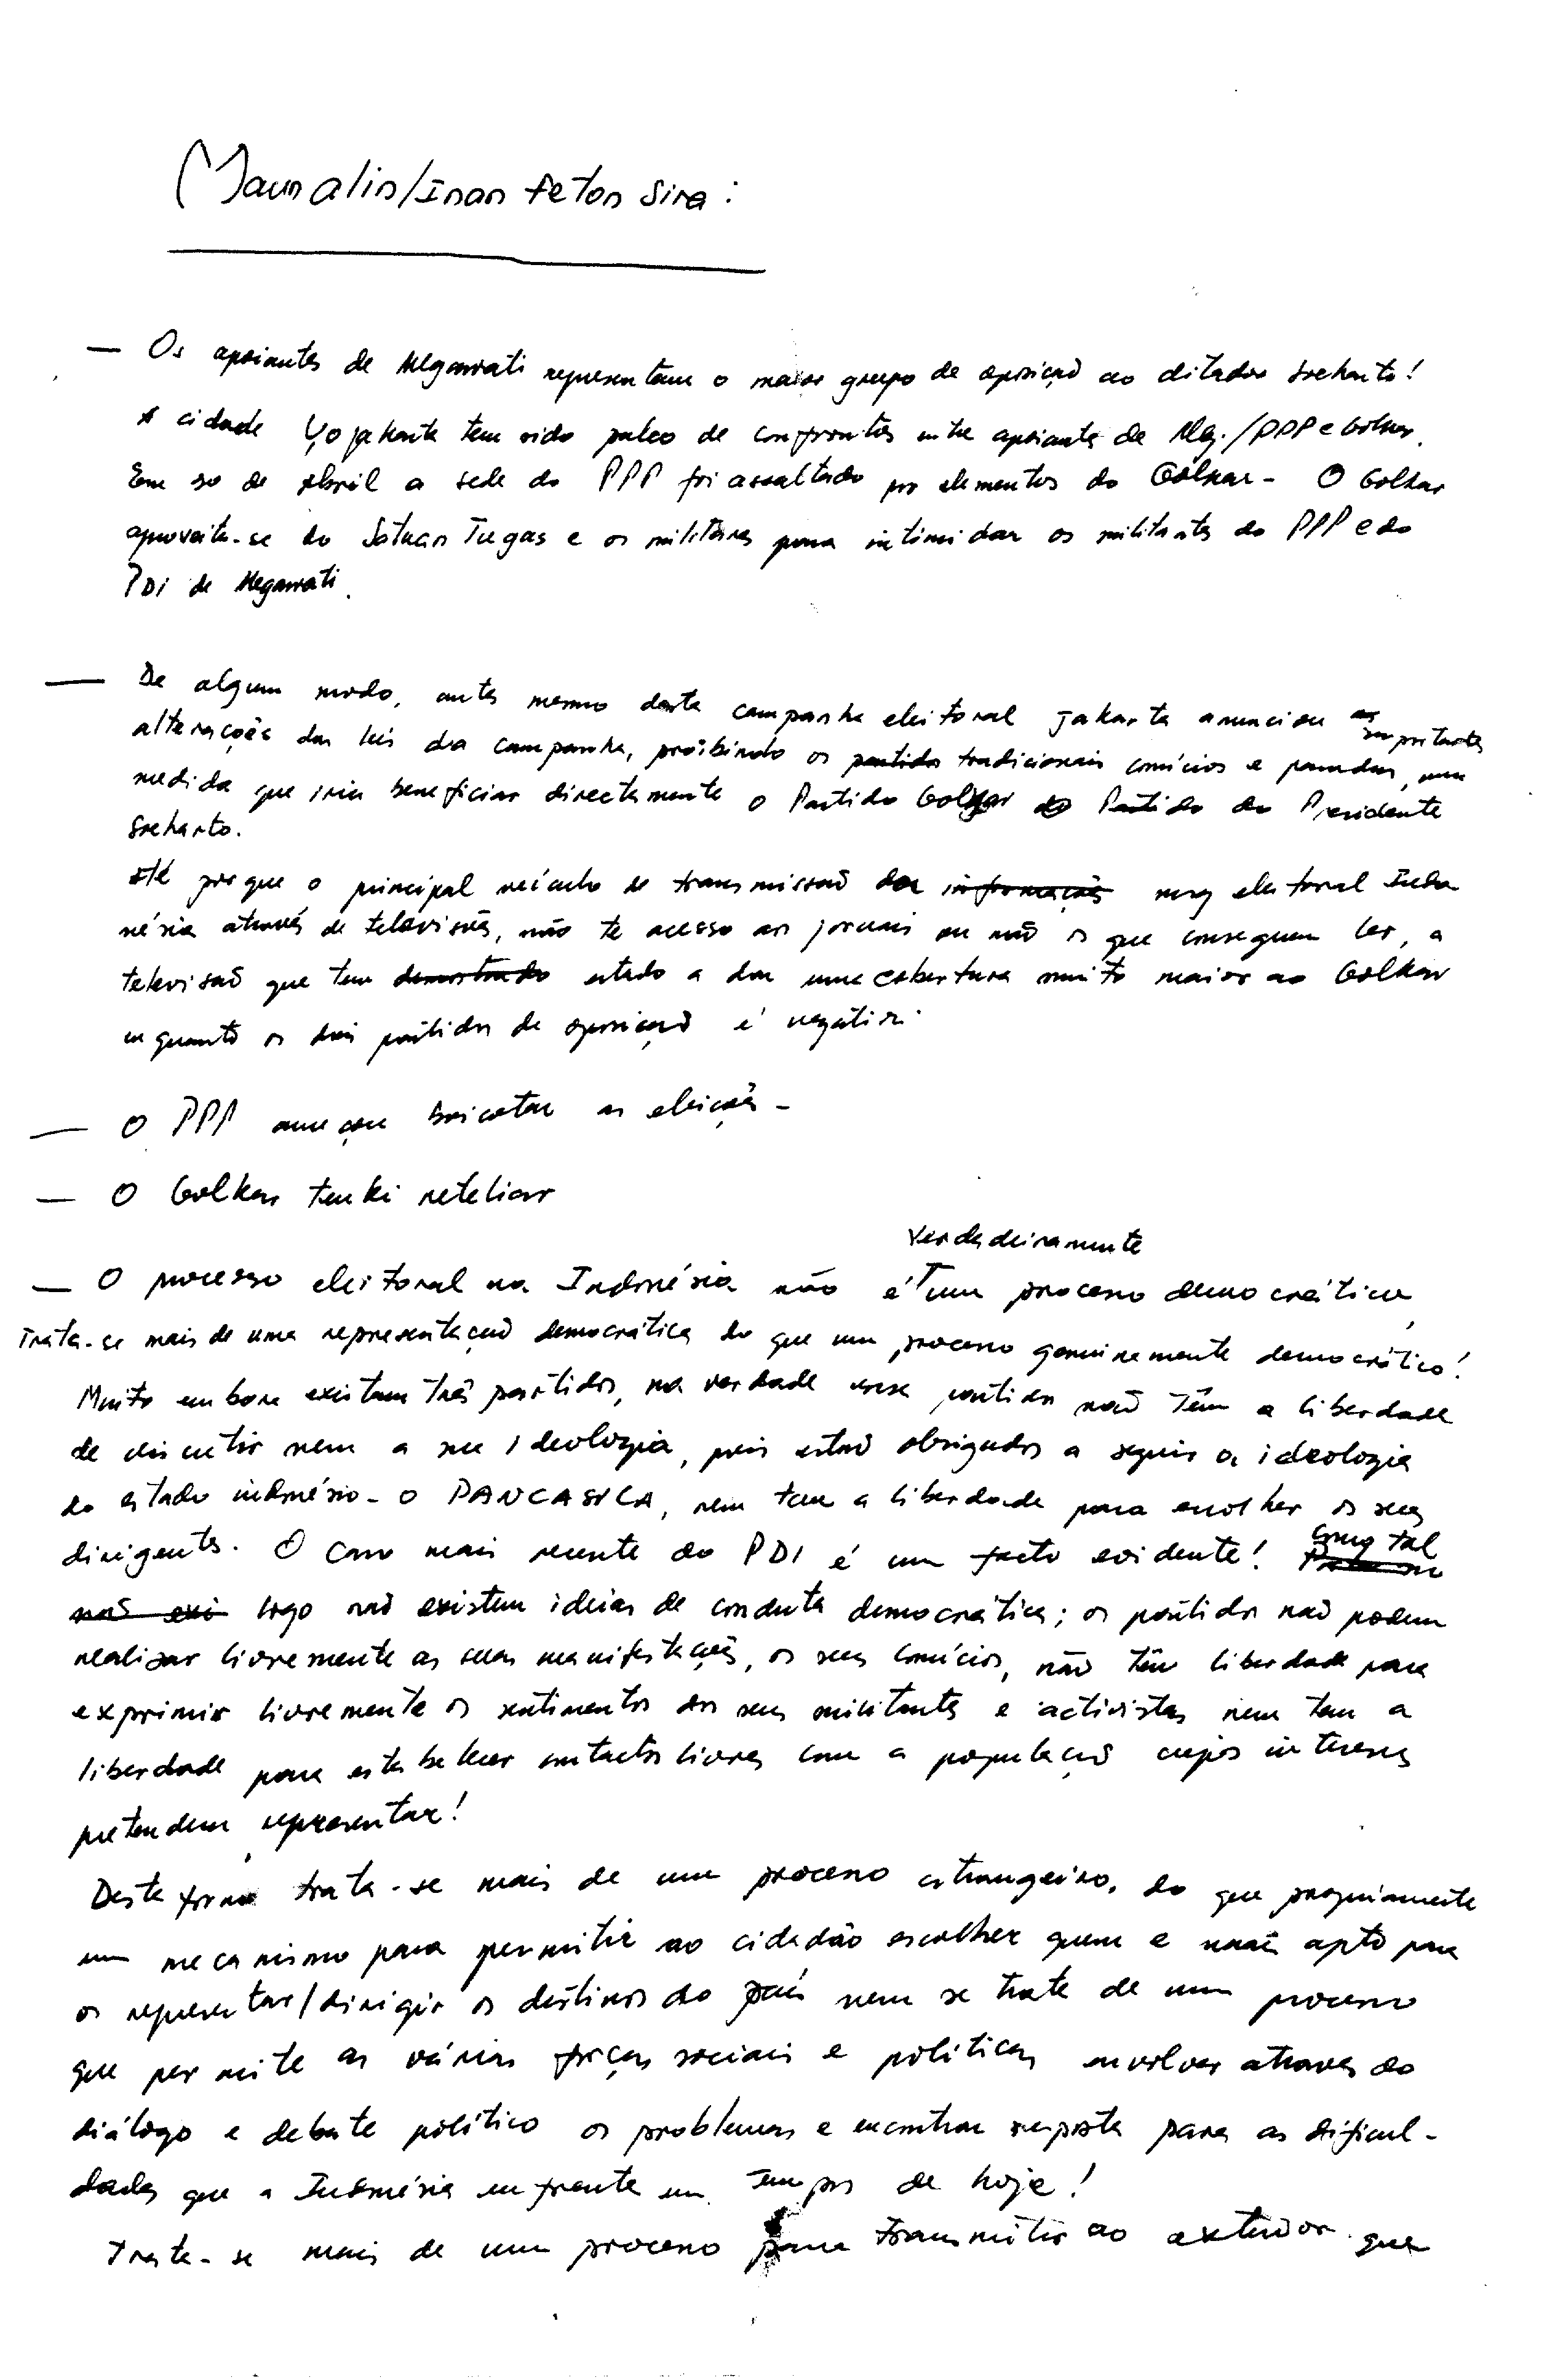 Maun alin/Inan feton sira:
— Os apoiantes de Megawati representam o maior grupo de oposição ao ditador Soeharto!
A cidade Yojakarta tem sido palco de confrontos entre apoiantes de Meg./PPP e Golkar.
Em 30 de Abril a sede do PPP foi assaltado por elementos do Golkar - O Golkar
aproveita-se do Satuan Tugas e os militares para intimidar os militantes do PPP e do
PDI de Megawati.
— De algum modo, antes mesmo desta campanha eleitoral Jakarta anunciou as importantes
alterações das leis da campanha, proibindo os partidos tradicionais comícios e paradas, uma
medida que iria beneficiar directamente o Partido Golkar do Partido do Presidente
Soeharto.
Até porque o principal veículo de transmissão da informações eleitoral Indo
nésia através de televisões, não te acesso aos jornais ou não os que conseguem ler, a
televisão que tem demostrado estado a dar uma cobertura muito maior ao Golkar
enquanto os dois partidos de oposição é negativa.
— O PPP ameaçou boicotar as eleições -
— O Golkar tenki reteliar
verdadeiramente
— O processo eleitoral na Indonésia não é um processo democrático,
Trata-se mais de uma representação democrática do que um processo genuinamente democrático!
Muito embora existam três partidos, na verdade esses partidos não têm a liberdade
de discutir nem a sua ideologia, pois estão obrigados a seguir a ideologia
do estado indonésio - o PANCASILA, nem tem a liberdade para escolher os seus
dirigentes. O caso mais recente do PDI é um facto evidente! Como tal
não exi logo não existem ideias de conduta democrática; os partidos não podem
realizar livremente as suas manifestações, os seus comícios, não têm liberdade para
exprimir livremente os sentimentos dos seus militantes e activistas nem tem a
liberdade para estabelecer contactos livres com a população cujos interesses
pretendem representar!
Desta forma trata-se mais de um processo estrangeiro, do que propriamente
um mecanismo para permitir ao cidadão escolher quem e mais apto para
os representar/dirigir os destinos do país nem se trate de um processo
que permite as várias forças sociais e políticas envolver atraves do
diálogo e debate político os problemas e encontrar resposta para as dificul-
dades que a Indonésia enfrente em tempos de hoje!
Trata-se mais de um processo para transmitir ao exterior que